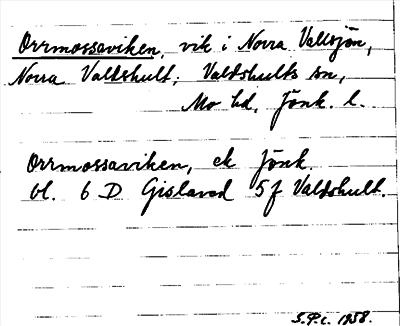 Orrmossaviken, vik i Norra Vallsjön,
Norra Valdshult, Valdshults sn,
Mo hd, Jönk. l.
Orrmossaviken, ek Jönk.
bl. 6 D Gislaved 5f Valdshult.
S.P.c. 1958.